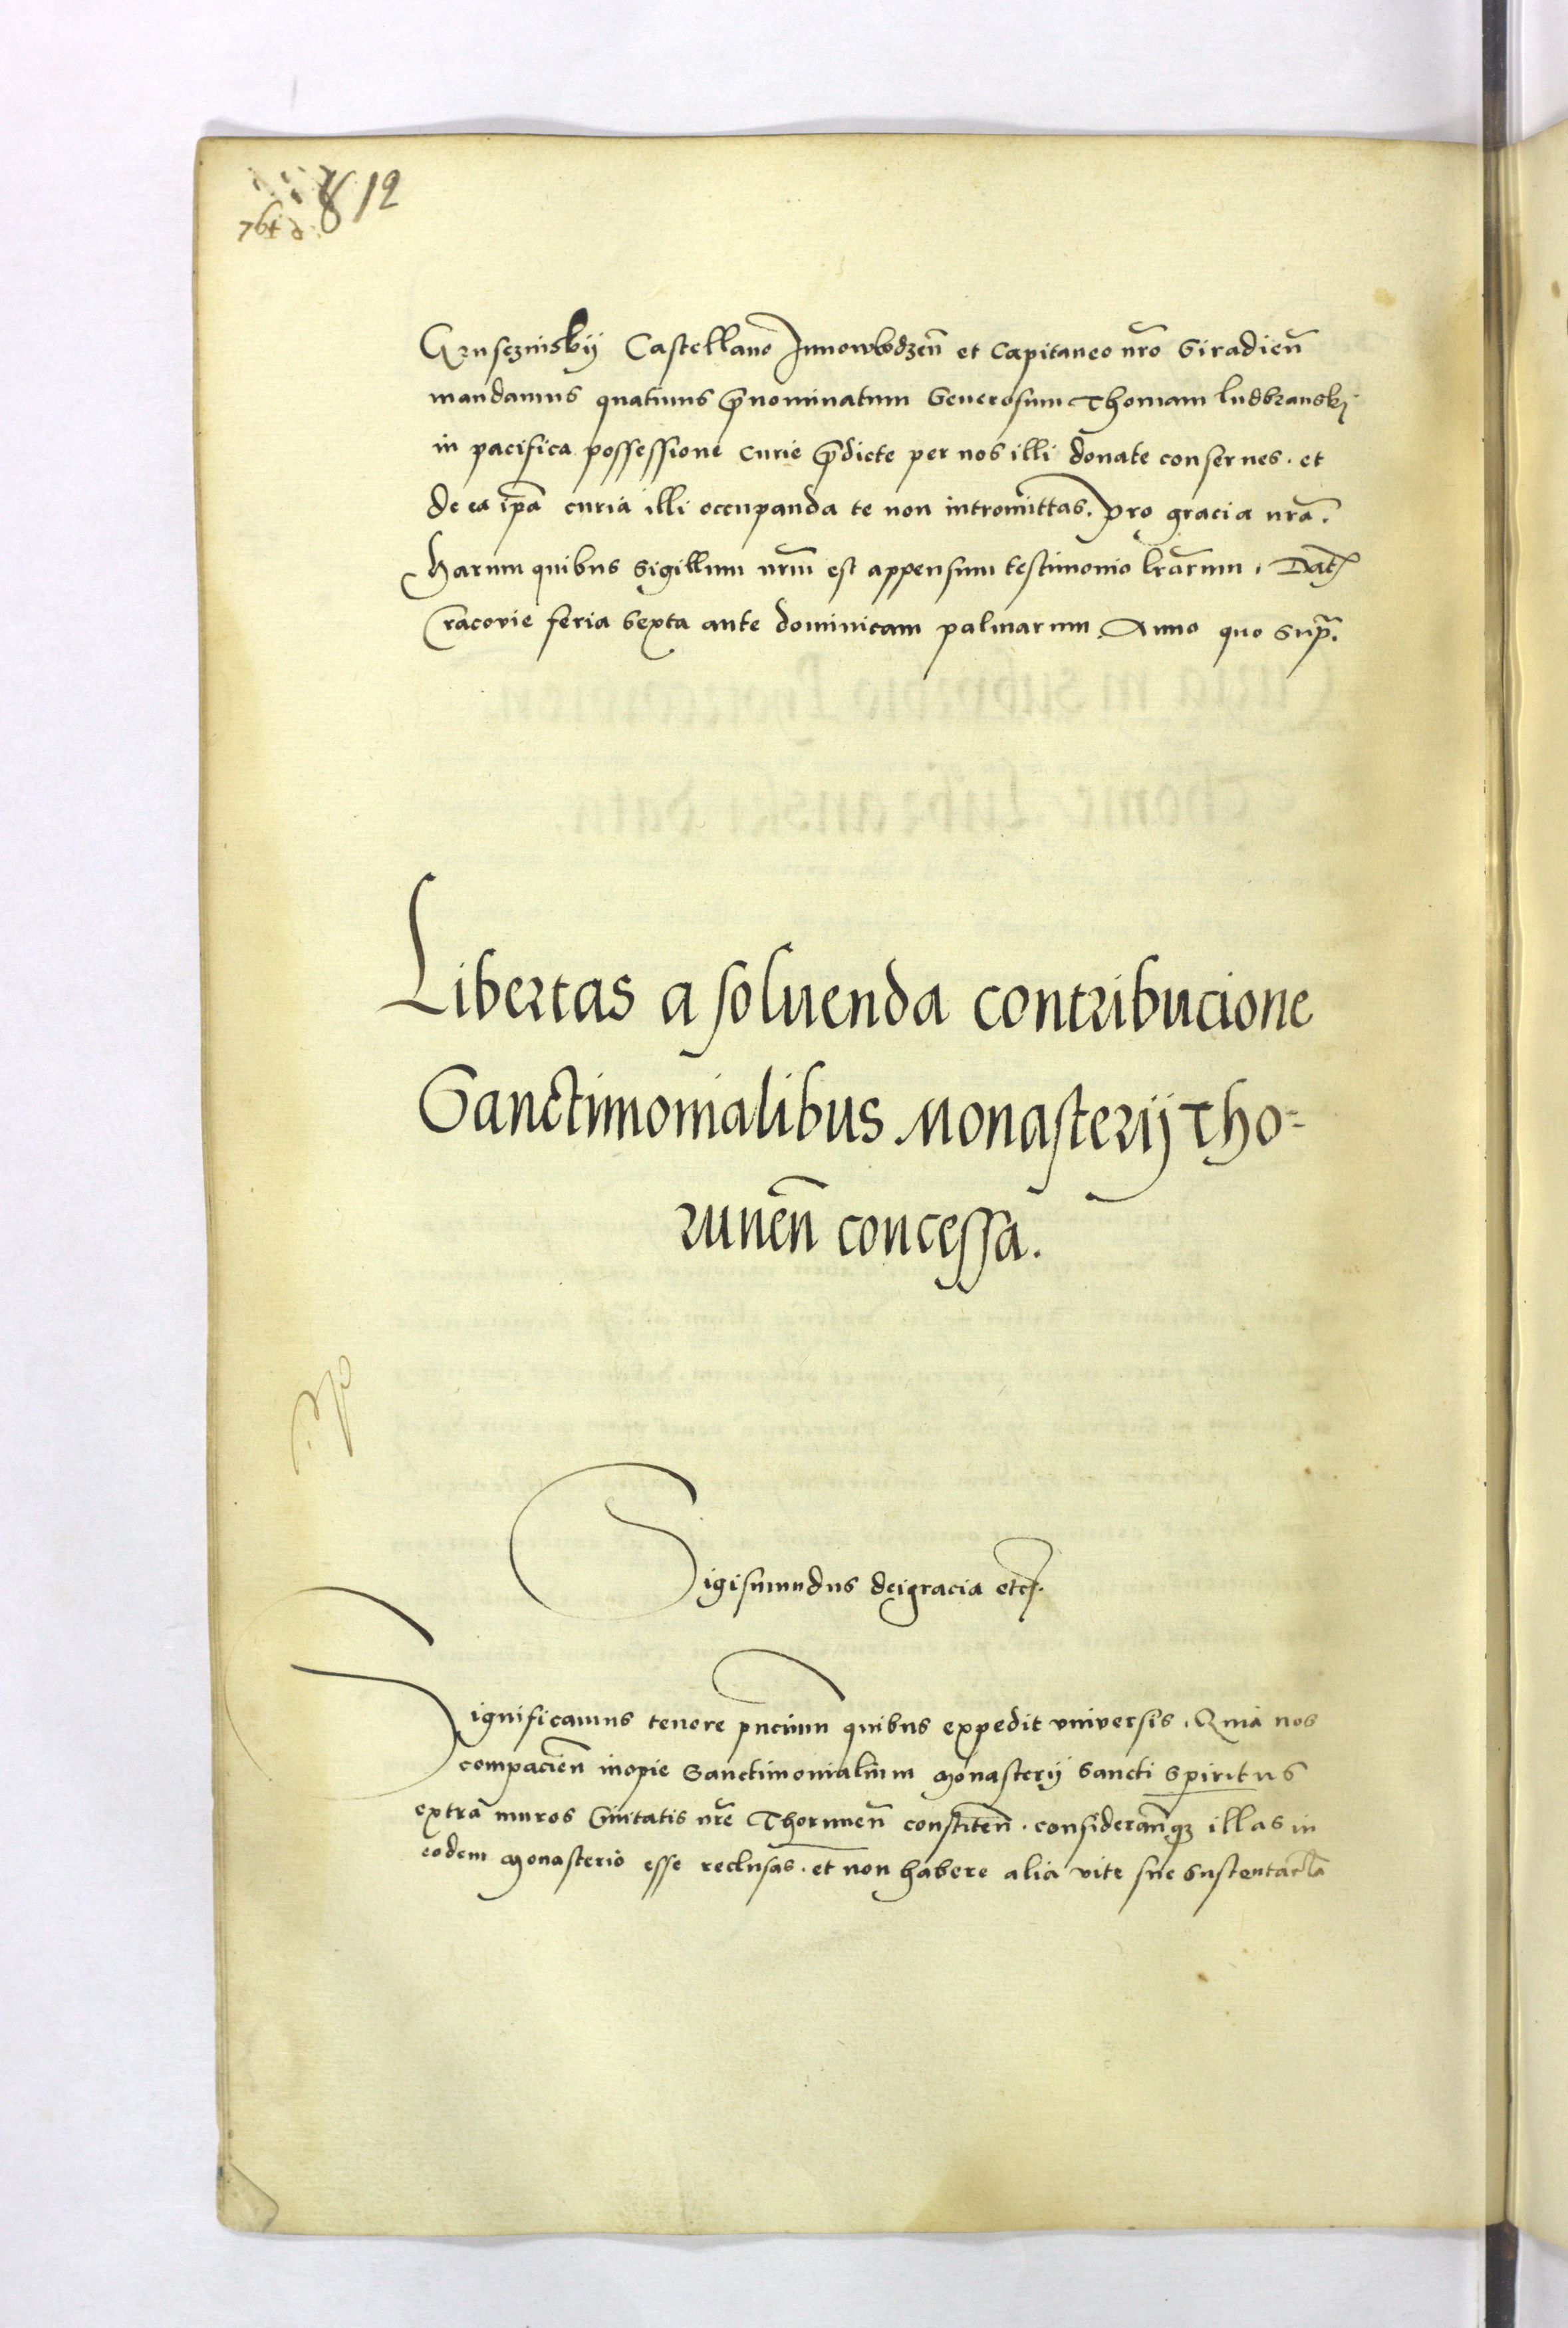 812
Crusezniskij Castellano Innowlodzen̄ et Capitaneo nr̄o Siradien̄
mandamus quatinus p̄nominatum Generosum Thomam ludbranskj
in pacifica possessione Curie p̄dicte per nos illi donate conserues. et
de ea ip̄a curia illi occupanda te non intromittas. pro gracia nr̄a.
Harum quibus sigillum nr̄m est appensum testimonio lr̄arum. Dat̄
Cracovie feria sexta ante dominicam palmarum Anno quo supr̄.
Libertas a soluenda contribucione
Sanctimonialibus Monasterij Tho=
runen̄ concessa.
Sigismundus dei gracia etc.
Significamus tenore pn̄cium quibus expedit vniversis. Quia nos
compacien̄ inopie Sanctimonialium Monasterij Sancti Spiritus
extra muros Ciuitatis nr̄e Thorunen̄ constiten̄. consideran̄qz illas in
eodem Monasterio esse reclusas. et non habere alia vite sue sustentacl̄a